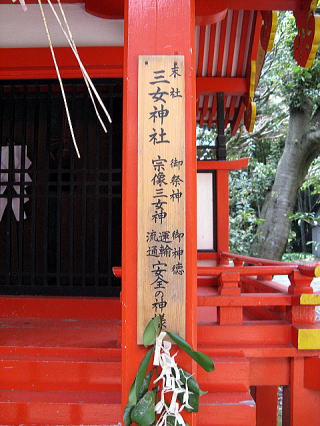 末社
三女神社
御祭神
宗像三女神
御神徳
運輸
流通
安全の神様